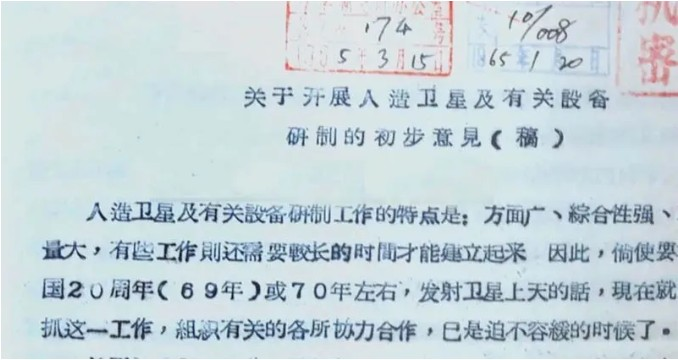 174
5 3 15
支 10/008
65年1月20日
机密
关于开展人造卫星及有关設备
研制的初步意見(稿)
人造卫星及有关設备研制工作的特点是:方面广、綜合性强、
量大,有些工作則还需要較长的时間才能建立起来 因此,倘使要
国20周年(69年)或70年左右,发射卫星上天的話,現在就
抓这一工作,組织有关的各所协力合作,已是迫不容緩的时候了。